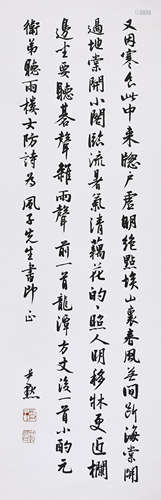 又因寒食此中来牕戶虛明絕點埃山裏春風無間斷海棠開
過地棠開小閣臨流暑氣清藕花的的照人明移牀更近欄
邊坐要聽碁聲雜雨聲前一首龍潭方丈後一首小酌元
衛弟聽雨樓士防詩為風子先生書即正
尹默